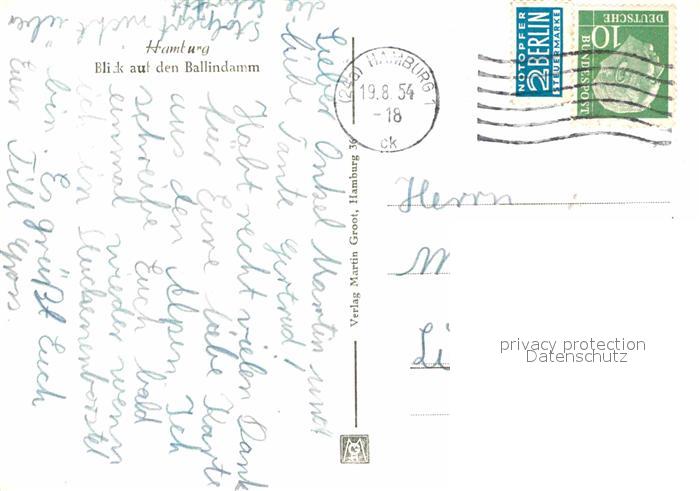 Hamburg
Blick auf den Ballindamm
Lieber Onkel Martin und
liebe Tante Gertrud!
Habt recht vielen Dank
für Eure liebe Karte
aus den Alpen. Ich
schreibe Euch bald
einmal wieder wenn
ich in
bin. Es grüßt Euch
Euer Till
Verlag Martin Groot, Hamburg 36
(24a) HAMBURG 1
19.8.54
-18
ck
NOTOPFER
2 BERLIN
STEUERMARKE
10
DEUTSCHE
BUNDESPOST
Herrn
M
Li
privacy protection
Datenschutz